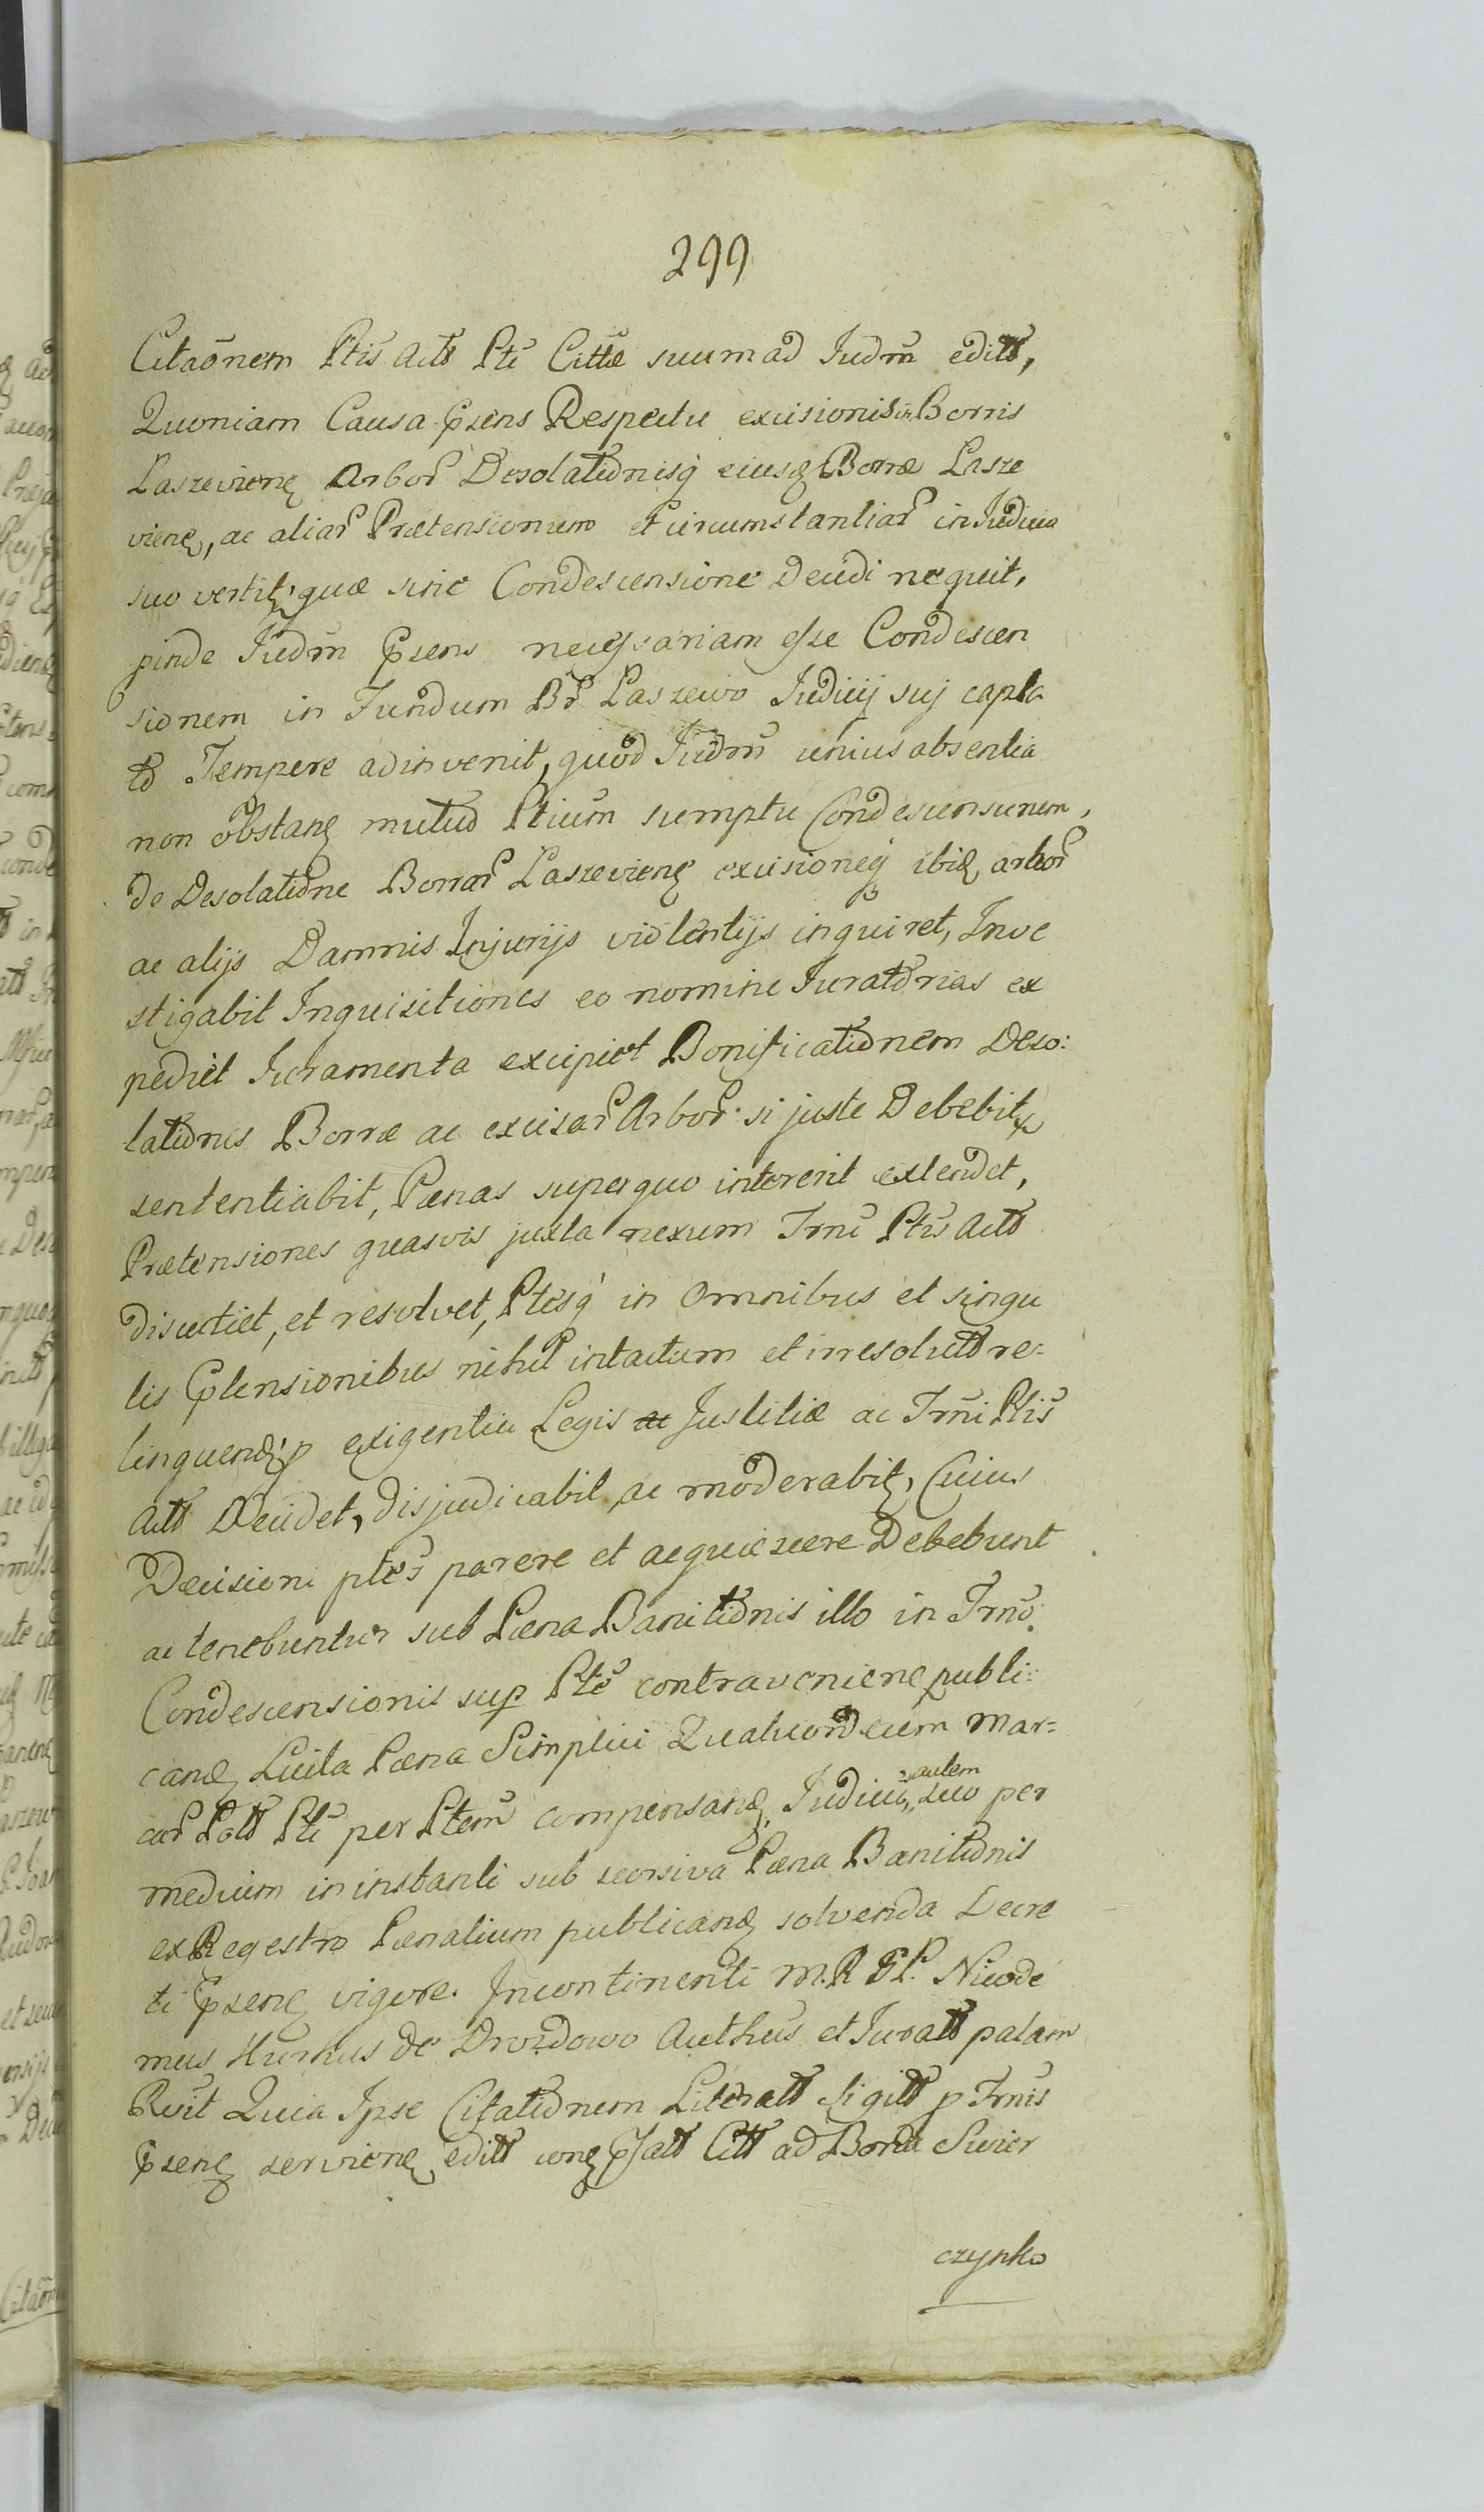 299
Citaõnem Ptis Actt Pti Cittæ suum ad Judm̃ editt,
Quoniam Causa Psens Respectu excisionis in Borris
Laszevienę Arbor̃ Desolationisq́ eiusę Borræ Lasze
vienę, ac aliar̃ Prætensionum et circumstantiar̃ in Judicio
suo vertitę, quæ sine Condescensione Decidi nequit,
pinde Judm̃ Psens necessariam esse Condescen
sionem in Fundum Br̃ Laszewo Judicij sui capta
to Tempore adinvenit, quod Judm̃ unius absentia
non obstanę mutuo Ptium sumptu Condescensurum,
de Desolatione Borrar̃ Laszevienę excisioneq́ ibię arbor̃
ac alijs Damnis Injurijs violentijs inquiret, Inve
stigabit Inquisitiones eo nomine Juratorias ex
pediet Juramenta excipiet Bonificationem Deso:
lationis Borræ ac excisar̃ Arbor̃ si juste Debebitę
sententiabit, Pænas super quo intererit extendet,
Prætensiones quasvis juxta nexum Trm̃i Ptis Actt
discutiet, et resolvet, Ptesq́ in Omnibus et singu
lis Ptensionibus nihil intactum et irresolutt re-
linquendę p exigentia Legis ac Justitiæ ac Trm̃i Ptis
Actt Decidet, disjudicabit, ac moderabitę, Cuius
Decisioni ptes parere et acquiescere Debebunt
ac tenebuntur sub Pæna Banitionis illo in Trm̃o
Condescensionis sup Pte contravenienę publi:
canę Luita Pæna Simplici Quatuordecim Mar=
car̃ Poll Pti per Ptem compensanę, Judicio, autem suo per
medium in instanti sub seorsiva Pæna Banitionis
ex Regestro Pænalium publicanę solvenda Decre
ti Psenę vigore. Incontinenti M. R. P. Nicode
mus de Drozdowo Authus et Juratt palam
Rvit Quia Ipse Citationem Literatt Sigitt p Trm̃is
Psenę servienę editt conę Psatt Citt ad Bona Swier
czynko